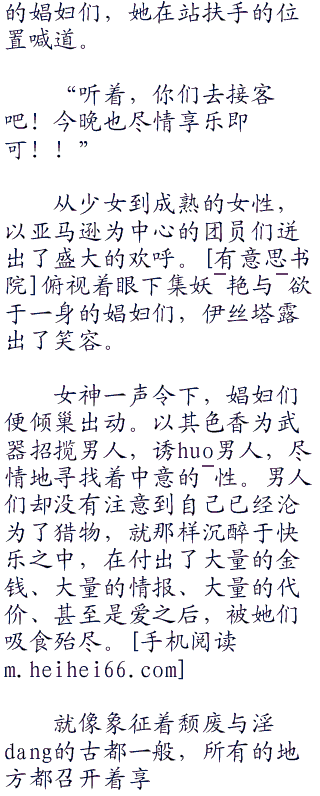 的娼妇们，她在站扶手的位
置喊道。
“听着，你们去接客
吧！今晚也尽情享乐即
可！！”
从少女到成熟的女性，
以亚马逊为中心的团员们迸
出了盛大的欢呼。[有意思书
院]俯视着眼下集妖¯艳与¯欲
于一身的娼妇们，伊丝塔露
出了笑容。
女神一声令下，娼妇们
便倾巢出动。以其色香为武
器招揽男人，诱huo男人，尽
情地寻找着中意的¯性。男人
们却没有注意到自己已经沦
为了猎物，就那样沉醉于快
乐之中，在付出了大量的金
钱、大量的情报、大量的代
价、甚至是爱之后，被她们
吸食殆尽。[手机阅读
m.heihei66.com]
就像象征着颓废与淫
dang的古都一般，所有的地
方都召开着享